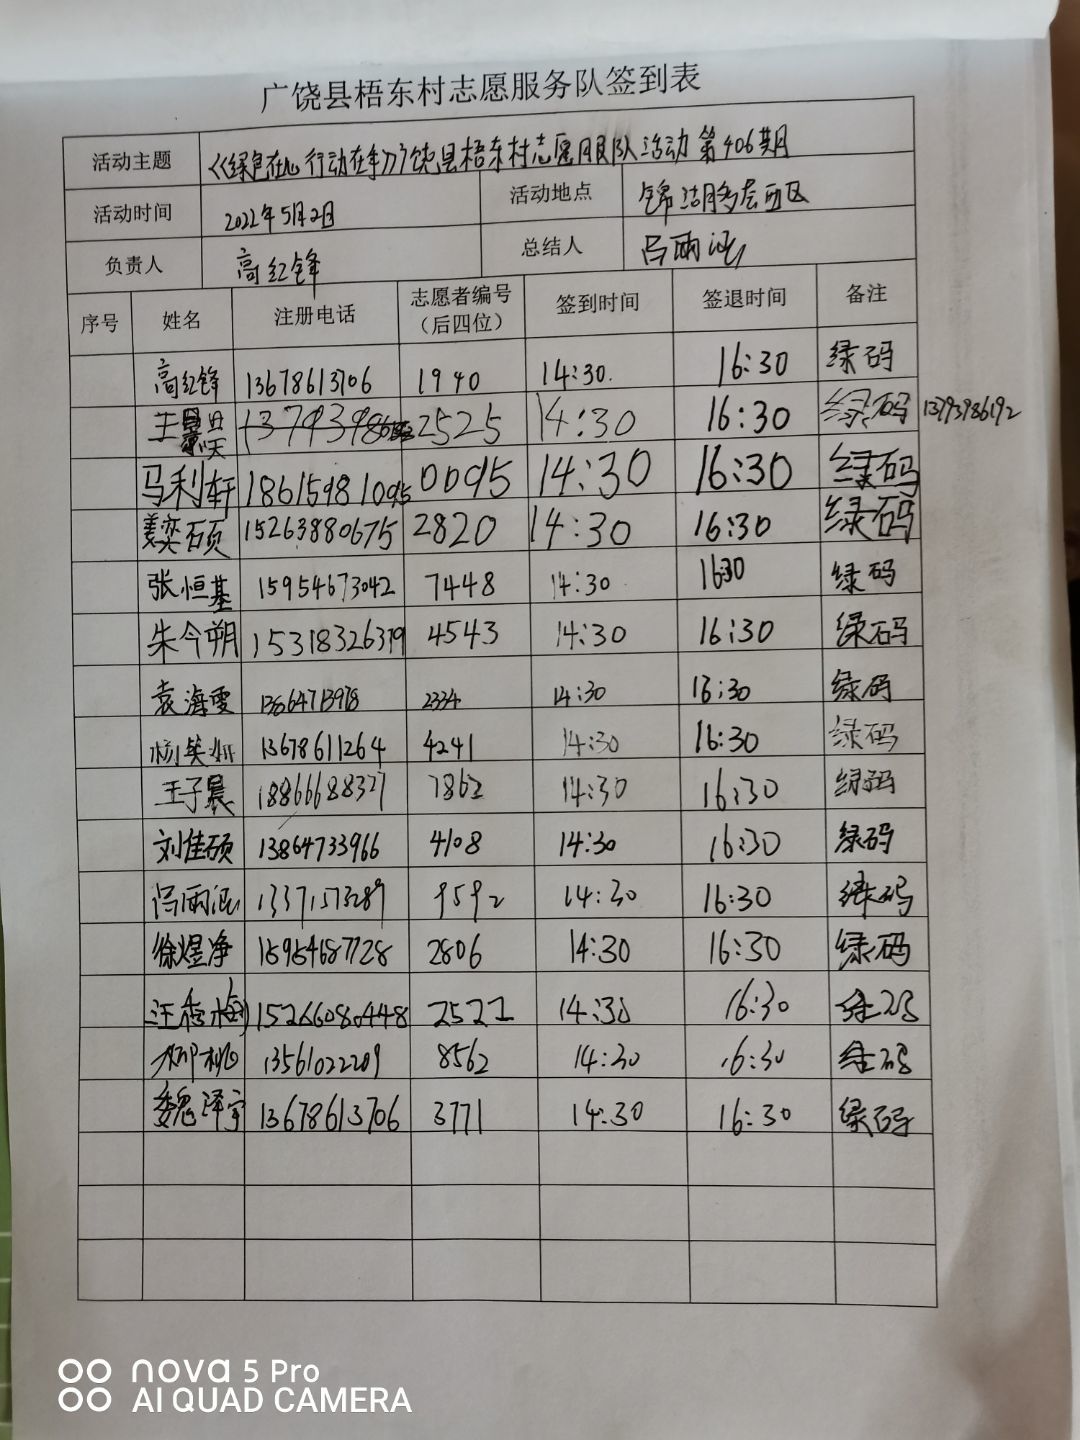 广饶县梧东村志愿服务队签到表
活动主题 《绿色在心 行动在手》广饶县梧东村志愿服务队活动 第406期
活动时间 2022年5月2日 活动地点 锦湖多层西区
负责人 高红锋 总结人 吕雨涵
序号 姓名 注册电话 志愿者编号（后四位） 签到时间 签退时间 备注
高红锋 13678613706 1940 14:30. 16:30 绿码
王昊天 2525 14:30 16:30 绿码 13793986192
马利轩 18615981095 0095 14:30 16:30 绿码
姜奕硕 15263880675 2820 14:30 16:30 绿码
张恒基 15954673042 7448 14:30 1630 绿码
朱今朔 15318326379 4543 14:30 16:30 绿码
袁海雯 13864713978 2334 14:30 16:30 绿码
13678611264 4241 14:30 16:30 绿码
王子晨 18866688327 1862 14:30 16:30 绿码
刘佳硕 13864733966 4108 14:30 16:30 绿码
吕雨涵 13371573289 9592 14:30 16:30 绿码
徐煜净 15954687728 2806 14:30 16:30 绿码
汪秀梅 15266080448 2522 14:30 16:30 绿码
柳桃 13561022209 8562 14:30 16:30 绿码
魏泽宇 13678613706 3771 14:30 16:30 绿码
nova 5 Pro
AI QUAD CAMERA